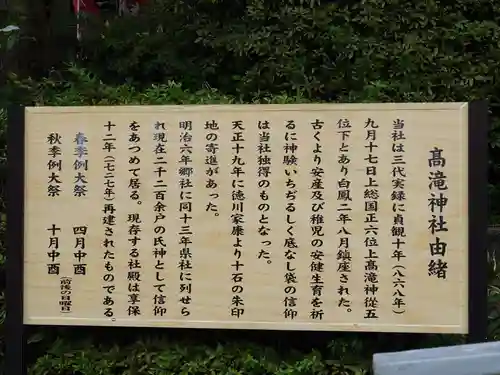 高滝神社由緒
当社は三代実録に貞観十年（八六八年）
九月十七日上総国正六位上高滝神従五
位下とあり白鳳二年八月鎮座された。
古くより安産及び稚児の安健生育を祈
るに神験いちぢるしく底なし袋の信仰
は当社独得のものとなった。
天正十九年に徳川家康より十石の朱印
地の寄進があった。
明治六年郷社に同十三年県社に列せら
れ現在二千二百余戸の氏神として信仰
をあつめて居る。現存する社殿は享保
十二年（一七二七年）再建されたものである。
春季例大祭　四月中酉
秋季例大祭　十月中酉（前後の日曜日）